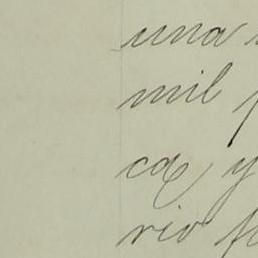 una
mil
ca y
rio